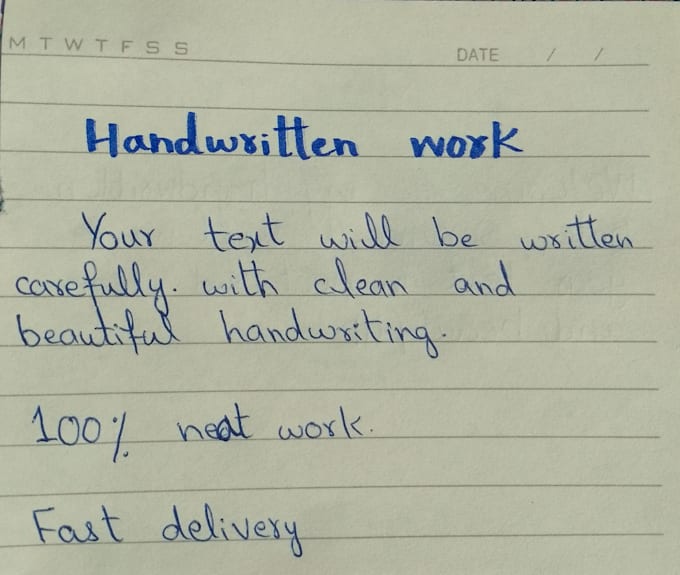 M T W T F S S
DATE / /
Handwritten work
Your text will be written
carefully. with clean and
beautiful handwriting.
100% neat work.
Fast delivery